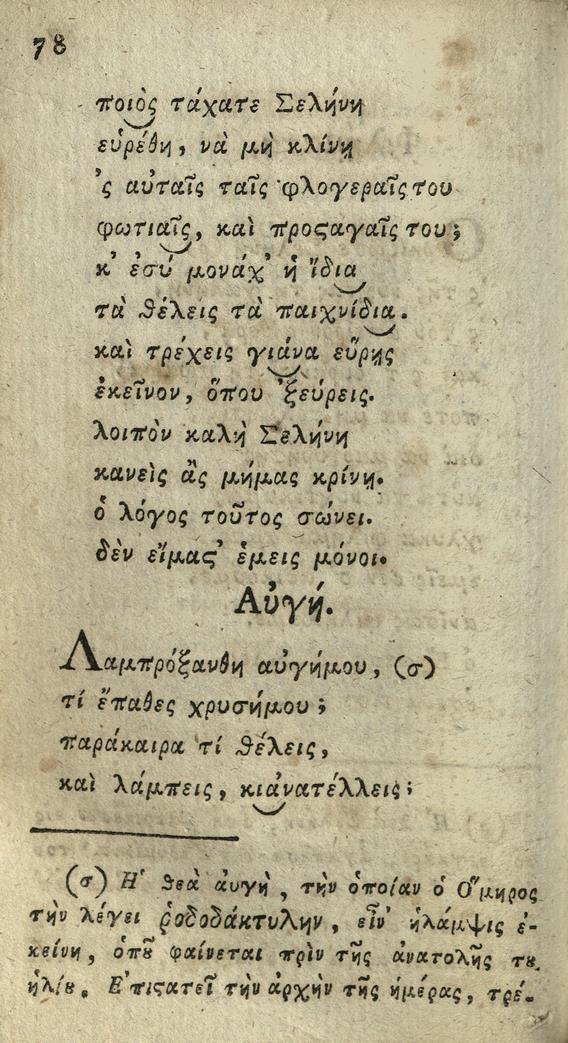 78
ποιὸς τάχατε Σελήνη
εὑρέθη, νὰ μὴ κλίνῃ
'ς αὐταῖς ταῖς φλογεραῖς του
φωτιαῖς, καὶ προϛαγαῖς του;
κ' ἐσύ μονάχ' ἡ ἴδια
τὰ θέλεις τὰ παιχνίδια.
καὶ τρέχεις γιάνα εὕρῃς
ἐκεῖνον, ὅπου 'ξεύρεις.
λοιπὸν καλὴ Σελήνη
κανεὶς ἂς μήμας κρίνῃ.
ὁ λόγος τοῦτος σώνει.
δὲν εἴμαϛ' ἐμεις μόνοι.
Αὐγή.
Λαμπρόξανθη αὐγήμου, (σ)
τί ἔπαθες χρυσήμου;
παράκαιρα τί θέλεις,
καὶ λάμπεις, κιἀνατέλλεις;
(σ) Ἡ θεὰ ἀυγὴ, τὴν ὁποίαν ὁ Ὅμηρος
τὴν λέγει ῥοδοδάκτυλην, εἶν' ἡλάμψις ἐ-
κείνη, ὁπȣ͂ φαίνεται πρὶν τῆς ἀνατολῆς τȣ
ἡλίȣ. Ἐπιϛατεῖ τὴν ἀρχὴν τῆς ἡμέρας, τρέ-